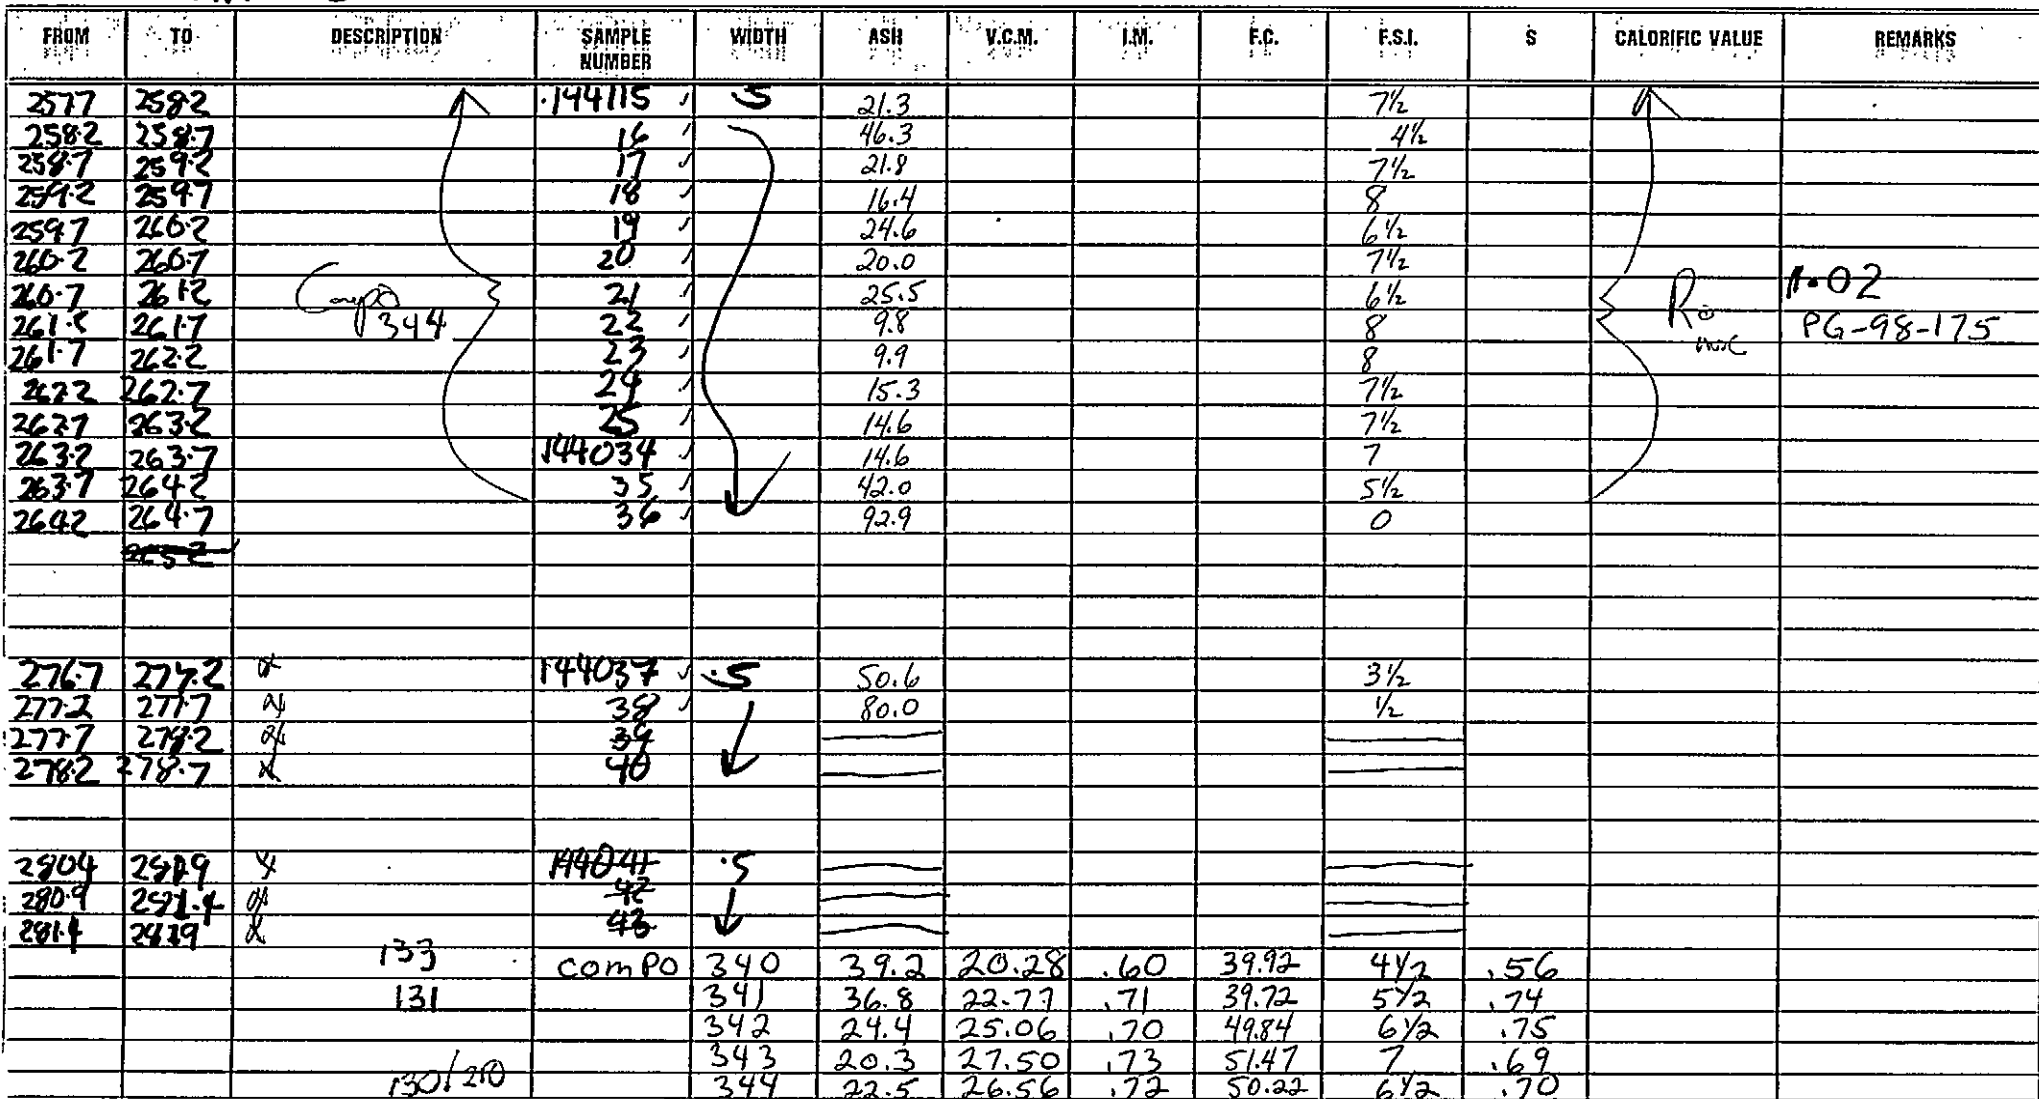 FROM TO DESCRIPTION SAMPLE NUMBER WIDTH ASH V.C.M. I.M. F.C. F.S.I. S CALORIFIC VALUE REMARKS
257.7 258.2 144115 .5 21.3 7½
258.2 258.7 16 46.3 4½
258.7 259.2 17 21.8 7½
259.2 259.7 18 16.4 8
259.7 260.2 19 24.6 6½
260.2 260.7 20 20.0 7½
260.7 261.2 Compo 21 25.5 6½ Ro 1.02
261.2 261.7 344 22 9.8 8 PG-98-175
261.7 262.2 23 9.9 8
262.2 262.7 24 15.3 7½
262.7 263.2 25 14.6 7½
263.2 263.7 144034 14.6 7
263.7 264.2 35 42.0 5½
264.2 264.7 36 92.9 0
265.2
276.7 277.2 144037 .5 50.6 3½
277.2 277.7 38 80.0 ½
277.7 278.2 39
278.2 278.7 40
280.4 280.9 144041 .5
280.9 281.4 42
281.4 281.9 43
133 comPO 340 39.2 20.28 .60 39.92 4½ .56
131 341 36.8 22.77 .71 39.72 5½ .74
342 24.4 25.06 .70 49.84 6½ .75
343 20.3 27.50 .73 51.47 7 .69
130/210 344 22.5 26.56 .72 50.22 6½ .70